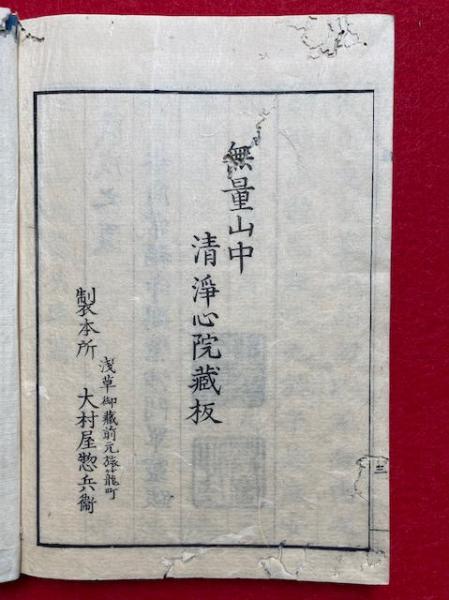 無量山中
清淨心院藏板
製本所
浅草御藏前元旅籠町
大村屋惣兵衞
三